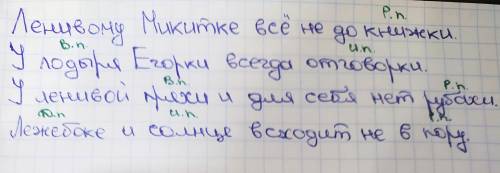 Р.п.
Ленивому Микитке всё не до книжки.
В.п. и.п.
У лодыря Егорки всегда отговорки.
В.п. Р.п.
У ленивой пряхи и для себя нет рубахи.
Д.п и.п.
Лежебоке и солнце всходит не в пору.